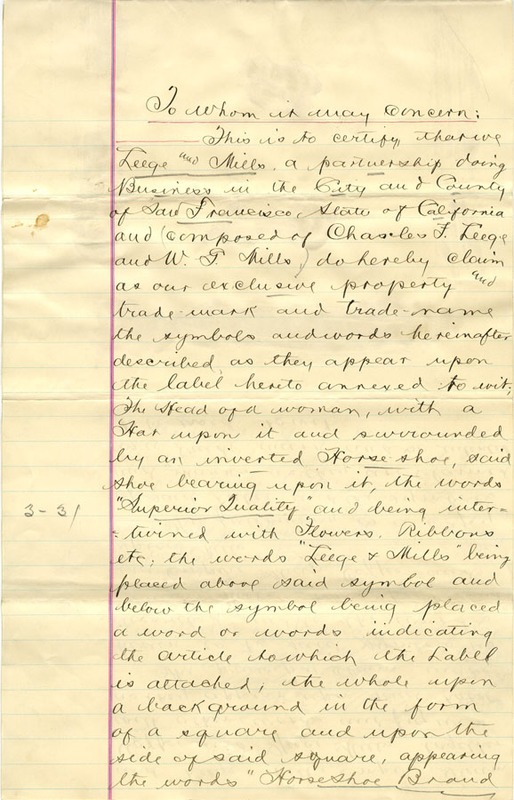 To whom it may concern:
This is to certify, that we
Leege and Mills, a partnership doing
Business in the City and County
of San Francisco, State of California
and (composed of Charles F. Leege
and W. T. Mills) do hereby claim
as our exclusive property and
trade-mark and trade-name
the symbols and words hereinafter
described, as they appear upon
the label hereto annexed to wit;
The Head of a woman, with a
Hat upon it and surrounded
by an inverted Horse-shoe, said
shoe bearing upon it, the words
"Superior Quality" and being inter=
3-31
=twined with Flowers, Ribbons
etc; the words "Leege & Mills" being
placed above said symbol and
below the symbol being placed
a word or words indicating
the article to which the Label
is attached, the whole upon
a background in the form
of a square and upon the
side of said square, appearing
the words "Horseshoe Brand